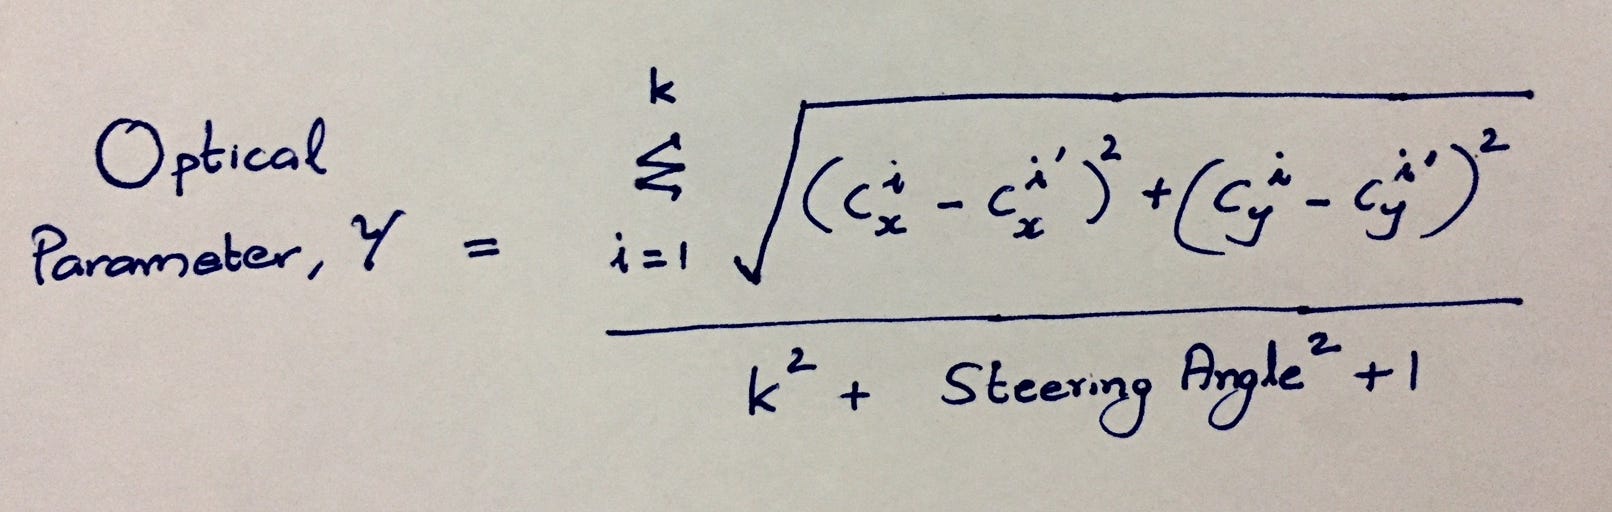 Optical
Parameter, γ = \frac{\sum_{i=1}^{k} \sqrt{(c_x^i - c_x^{i'})^2 + (c_y^i - c_y^{i'})^2}}{k^2 + Steering Angle^2 + 1}